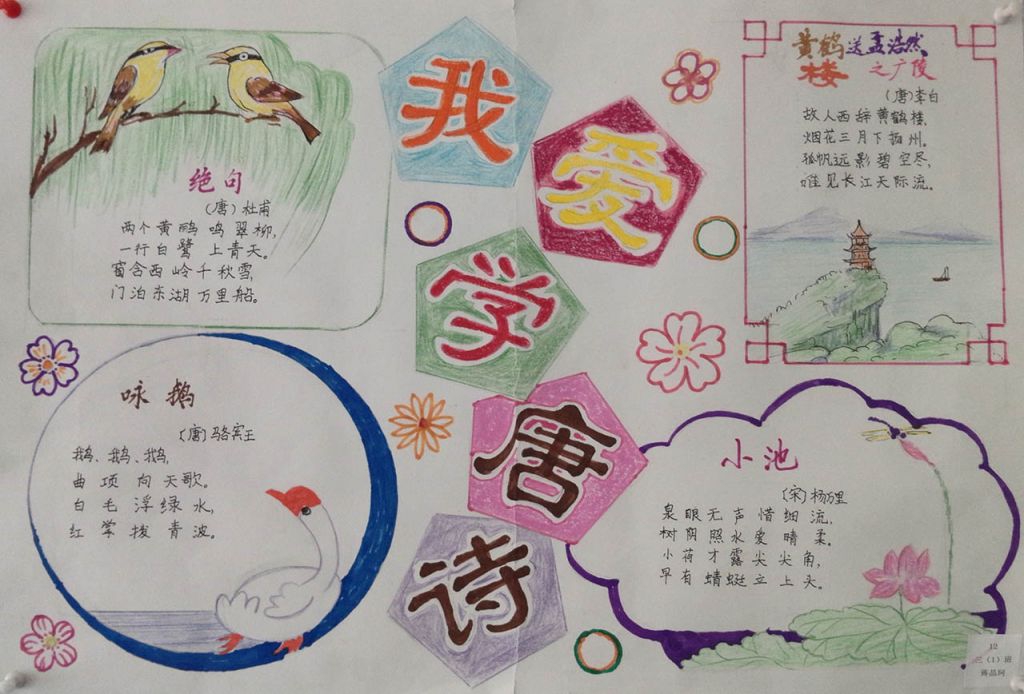 我爱学唐诗
绝句
（唐）杜甫
两个黄鹂鸣翠柳，
一行白鹭上青天。
窗含西岭千秋雪，
门泊东湖万里船。
黄鹤楼送孟浩然之广陵
（唐）李白
故人西辞黄鹤楼，
烟花三月下扬州。
孤帆远影碧空尽，
唯见长江天际流。
咏鹅
（唐）骆宾王
鹅、鹅、鹅，
曲项向天歌。
白毛浮绿水，
红掌拨青波。
小池
（宋）杨万里
泉眼无声惜细流，
树阴照水爱晴柔。
小荷才露尖尖角，
早有蜻蜓立上头。
12
三（1）班